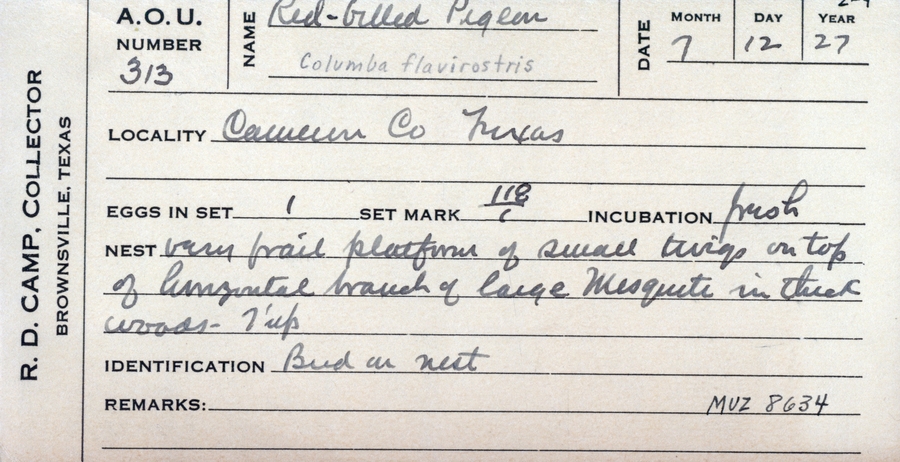 A.O.U.
NUMBER
313
NAME Red-billed Pigeon
Columba flavirostris
DATE
MONTH DAY YEAR
7 12 27
R. D. CAMP, COLLECTOR
BROWNSVILLE, TEXAS
LOCALITY Cameron Co Texas
EGGS IN SET 1 SET MARK 118/1 INCUBATION fresh
NEST very frail platform of small twigs on top
of horizontal branch of large Mesquite in thick
woods - 7' up
IDENTIFICATION Bird on nest
REMARKS: MVZ 8634